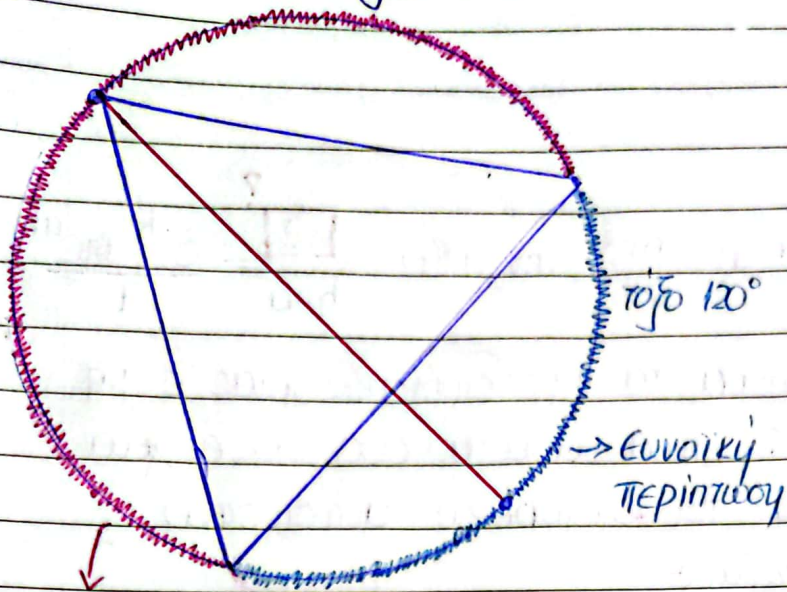 τόξο 120°
→ Ευνοϊκή
περίπτωση